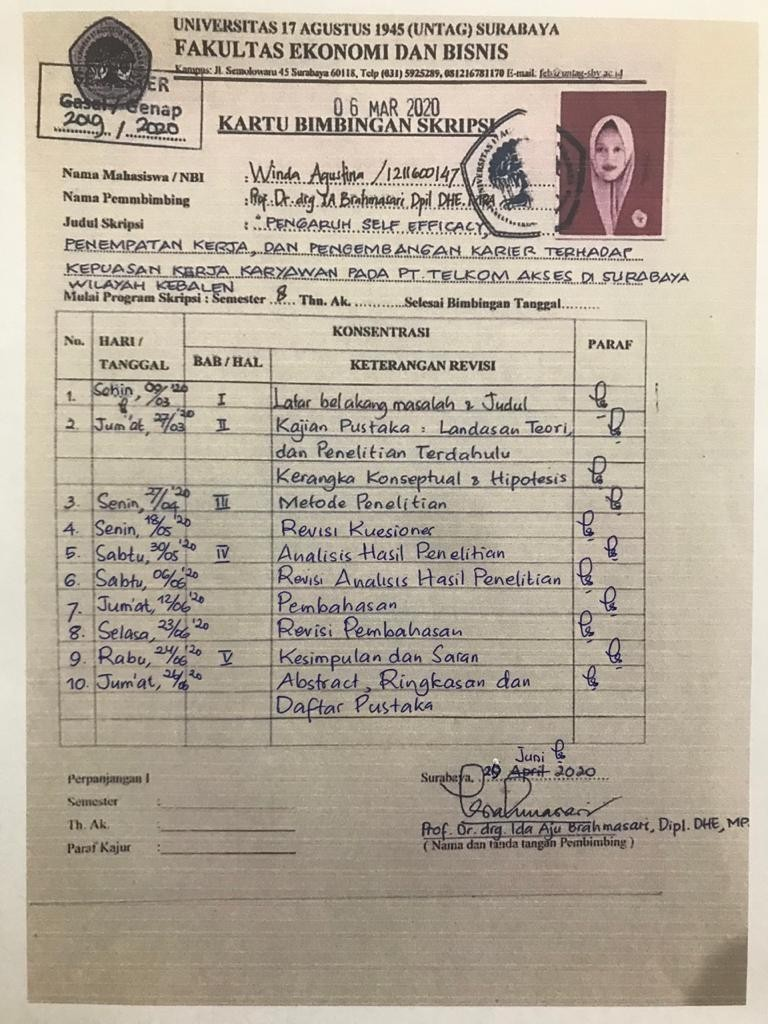 UNIVERSITAS 17 AGUSTUS 1945 (UNTAG) SURABAYA
FAKULTAS EKONOMI DAN BISNIS
Kampus: Jl. Semolowaru 45 Surabaya 60118, Telp (031) 5925289, 081216781170 E-mail. feb@untag-sby.ac.id
Gasal / Genap
2019 / 2020
06 MAR 2020
KARTU BIMBINGAN SKRIPSI
Nama Mahasiswa / NBI : Winda Agustina / 1211600147
Nama Pemmbimbing : Prof. Dr. drg. IA Brahmasari Dpil DHE,
Judul Skripsi : "PENGARUH SELF EFFICACY,
PENEMPATAN KERJA, DAN PENGEMBANGAN KARIER TERHADAP
KEPUASAN KERJA KARYAWAN PADA PT. TELKOM AKSES DI SURABAYA
WILAYAH KEBALEN
Mulai Program Skripsi : Semester 8 Thn. Ak. ............ Selesai Bimbingan Tanggal.........
No. HARI / TANGGAL KONSENTRASI PARAF
BAB / HAL KETERANGAN REVISI
1. Senin, 09/03 '20 I Latar belakang masalah & Judul
2. Jum'at, 27/03 '20 II Kajian Pustaka : Landasan Teori,
dan Penelitian Terdahulu
Kerangka Konseptual & Hipotesis
3. Senin, 27/04 '20 III Metode Penelitian
4. Senin, 18/05 '20 Revisi Kuesioner
5. Sabtu, 30/05 '20 IV Analisis Hasil Penelitian
6. Sabtu, 06/06 '20 Revisi Analisis Hasil Penelitian
7. Jum'at, 12/06 '20 Pembahasan
8. Selasa, 23/06 '20 Revisi Pembahasan
9. Rabu, 24/06 '20 V Kesimpulan dan Saran
10. Jum'at, 26/06 '20 Abstract, Ringkasan dan
Daftar Pustaka
Juni
Perpanjangan I
Surabaya, April 2020
Semester :
Th. Ak. :
Prof. Dr. drg. Ida Aju Brahmasari, Dipl. DHE, MP.
Paraf Kajur :
( Nama dan tanda tangan Pembimbing )